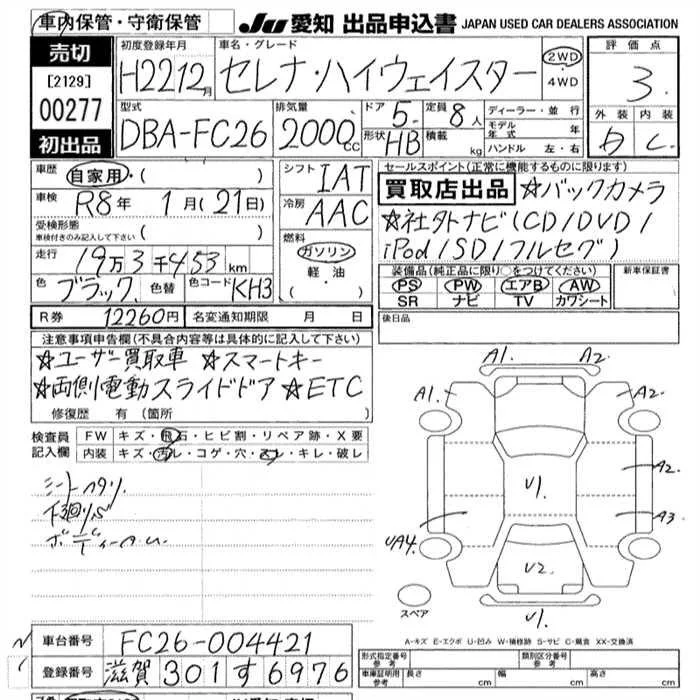 車内保管・守衛保管
JU 愛知 出品申込書 JAPAN USED CAR DEALERS ASSOCIATION
売切
[2129]
00277
初出品
初度登録年月
H22 12月
車名・グレード
セレナ・ハイウェイスター
2WD・4WD
評価点
3
外装 内装
D C
型式
DBA-FC26
排気量
2000cc
ドア 5 定員 8人
形状 HB 積載 kg
ディーラー・並行
モデル年式 年
ハンドル 左・右
車歴 自家用・( )
車検 R8年 1月(21日)
受検形態
車検付きのみ記入して下さい ( )
走行 19万3千453km
色 ブラック 色替 色コード KH3
シフト IAT
冷房 AAC
燃料
ガソリン
軽油
( ・ )
セールスポイント(正常に機能するものに限ります)
買取店出品 ☆バックカメラ
☆社外ナビ(CD/DVD/
iPod/SD/フルセグ)
装備品(純正品に限り○をつけてください)
PS PW エアB AW
SR ナビ TV カワシート
新車保証書
R券 12260円 名変通知期限 月 日
後日品
注意事項申告欄(不具合内容等は具体的に記入して下さい)
☆ユーザー買取車 ☆スマートキー
☆両側電動スライドドア ☆ETC
修復歴 有(箇所 )
検査員記入欄
FW キズ・飛石・ヒビ割・リペア跡・X要
内装 キズ・汚レ・コゲ・穴・スレ・キレ・破レ
シートハタリ
下廻りS
A1 A2
A1 A2
A2
U1
UA4 A3
U2
U1
スペア
A-キズ E-エクボ U-凹み W-補修跡 S-サビ C-腐食 XX-交換済
車台番号 FC26-004421
登録番号 滋賀 301 す 6976
形式指定番号 参考
類別区分番号 参考
車庫証明用 参考 長さ cm 幅 cm 高さ cm